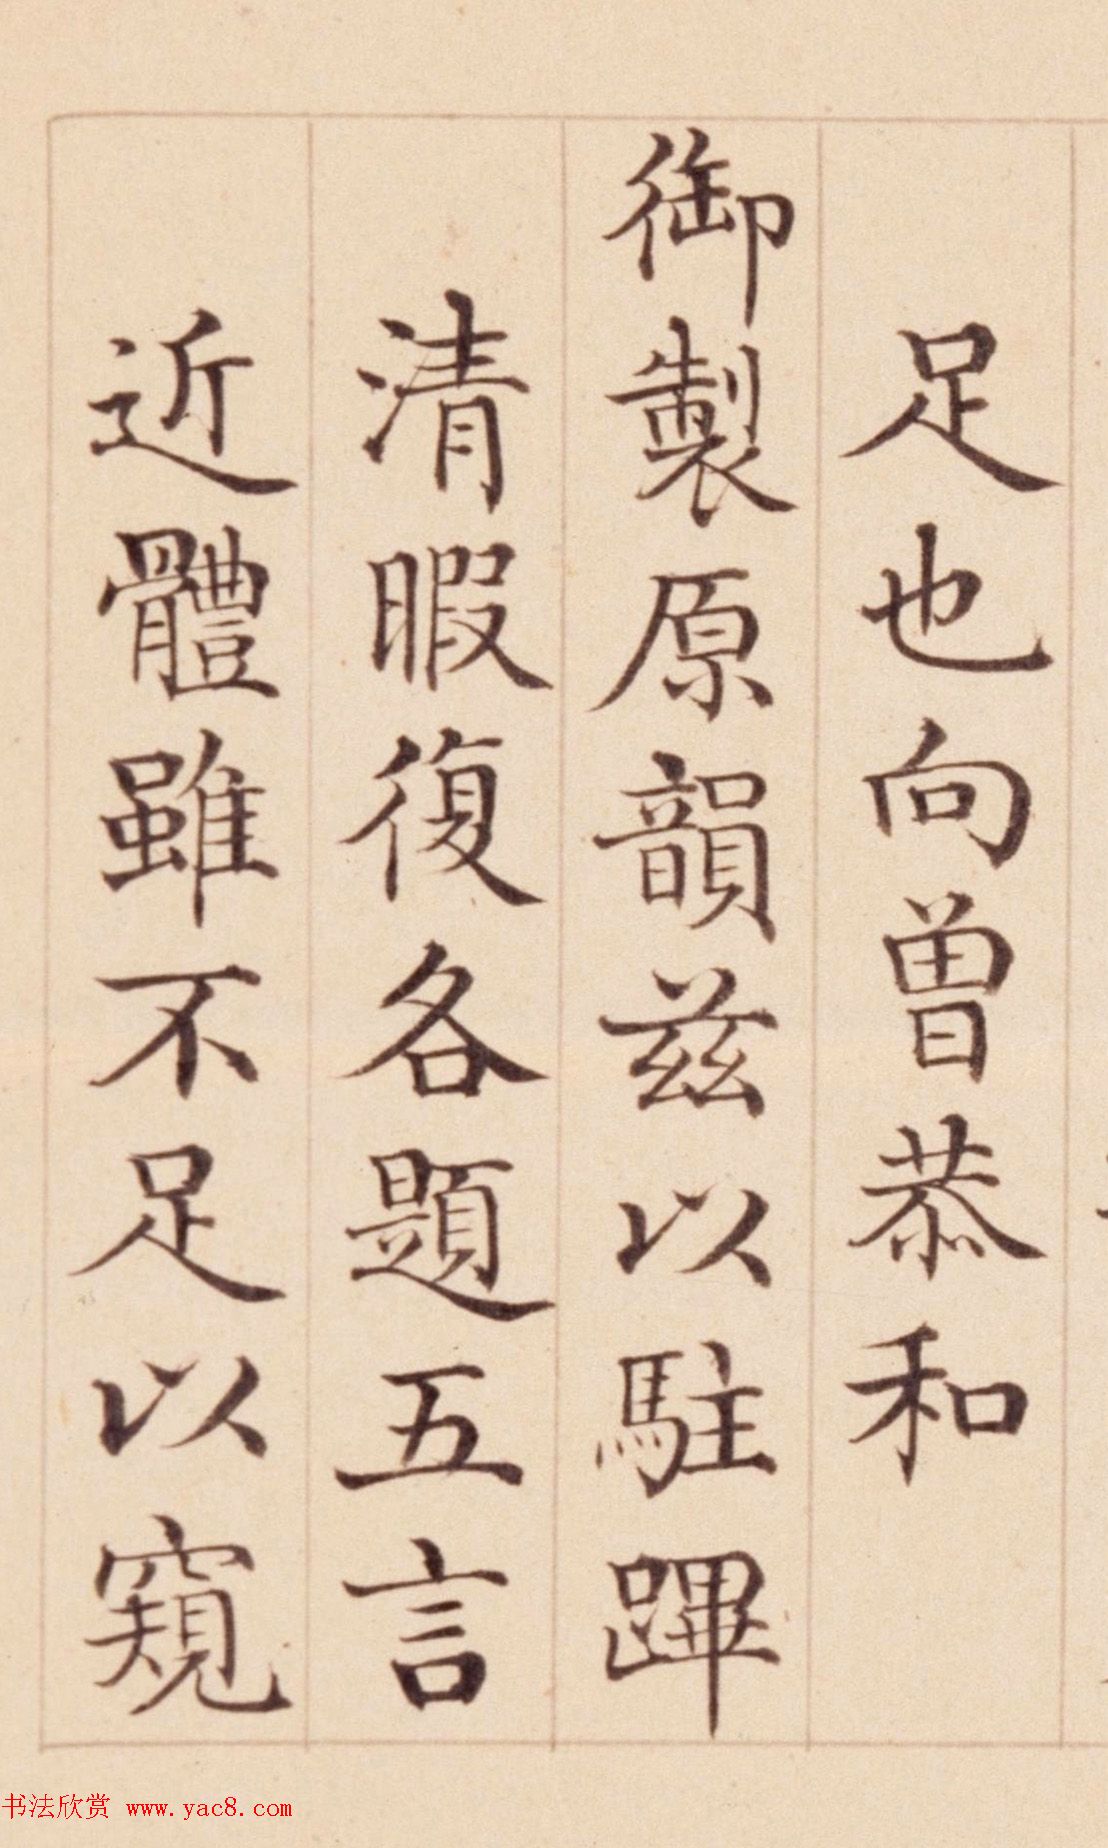 足也向曾恭和
御製原韻茲以駐蹕
清暇復各題五言
近體雖不足以窺
书法欣赏 www.yac8.com